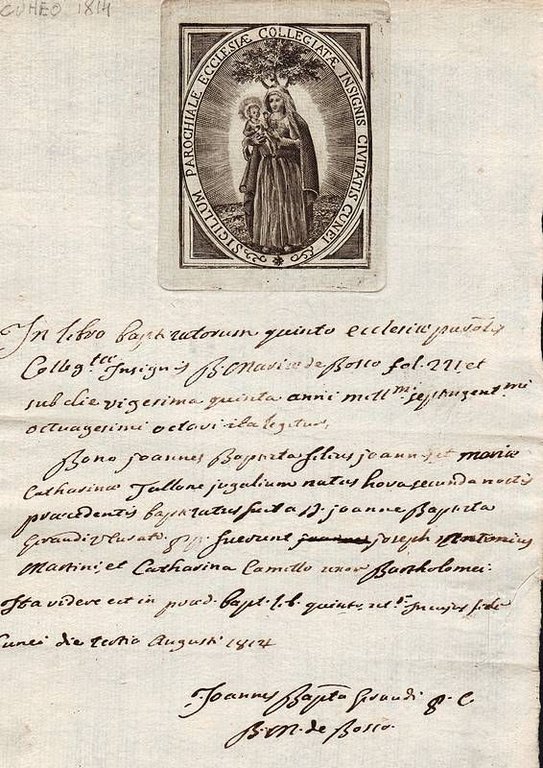 CUNEO 1814
SIGILLUM PAROCHIALE ECCLESIÆ COLLEGIATÆ INSIGNIS CIVITATIS CUNEI
In libro baptizatorum quinto ecclesiæ paro.lis
Colleg.tæ Insignis B. Mariæ de Bosco fol. 221 et
sub die vigesima quinta anni mill.mi septingent.mi
octuagesimi octavi ita legitur,
Bono joannes Baptista filius joannis et mariæ
Catharinæ Tallone jugalium natus hora secunda noctis
præcedentis baptizatus fuit a D. joanne Baptista
Giraudi v. Curato, pp. fuerunt joseph Antonius
Martini, et Catharina Camillo uxor Bartholomei.
Ita videre est in præd. bapt. lib. quinto, in cujus fide
Cunei die tertia Augusti 1814
Joannes Bap.ta Giraudi
B. M. de Bosco.